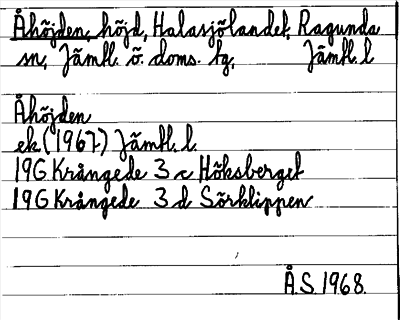 Åhöjden, höjd, Halasjölandet, Ragunda
sn, Jämtl. ö. doms. tg, Jämtl. l
Åhöjden
ek (1967) Jämtl. l.
19G Krångede 3 c Höksberget
19G Krångede 3 d Sörklippen
Å.S. 1968.